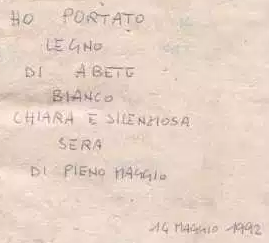 HO PORTATO
LEGNO
DI ABETE
BIANCO
CHIARA E SILENZIOSA
SERA
DI PIENO MAGGIO
14 MAGGIO 1992